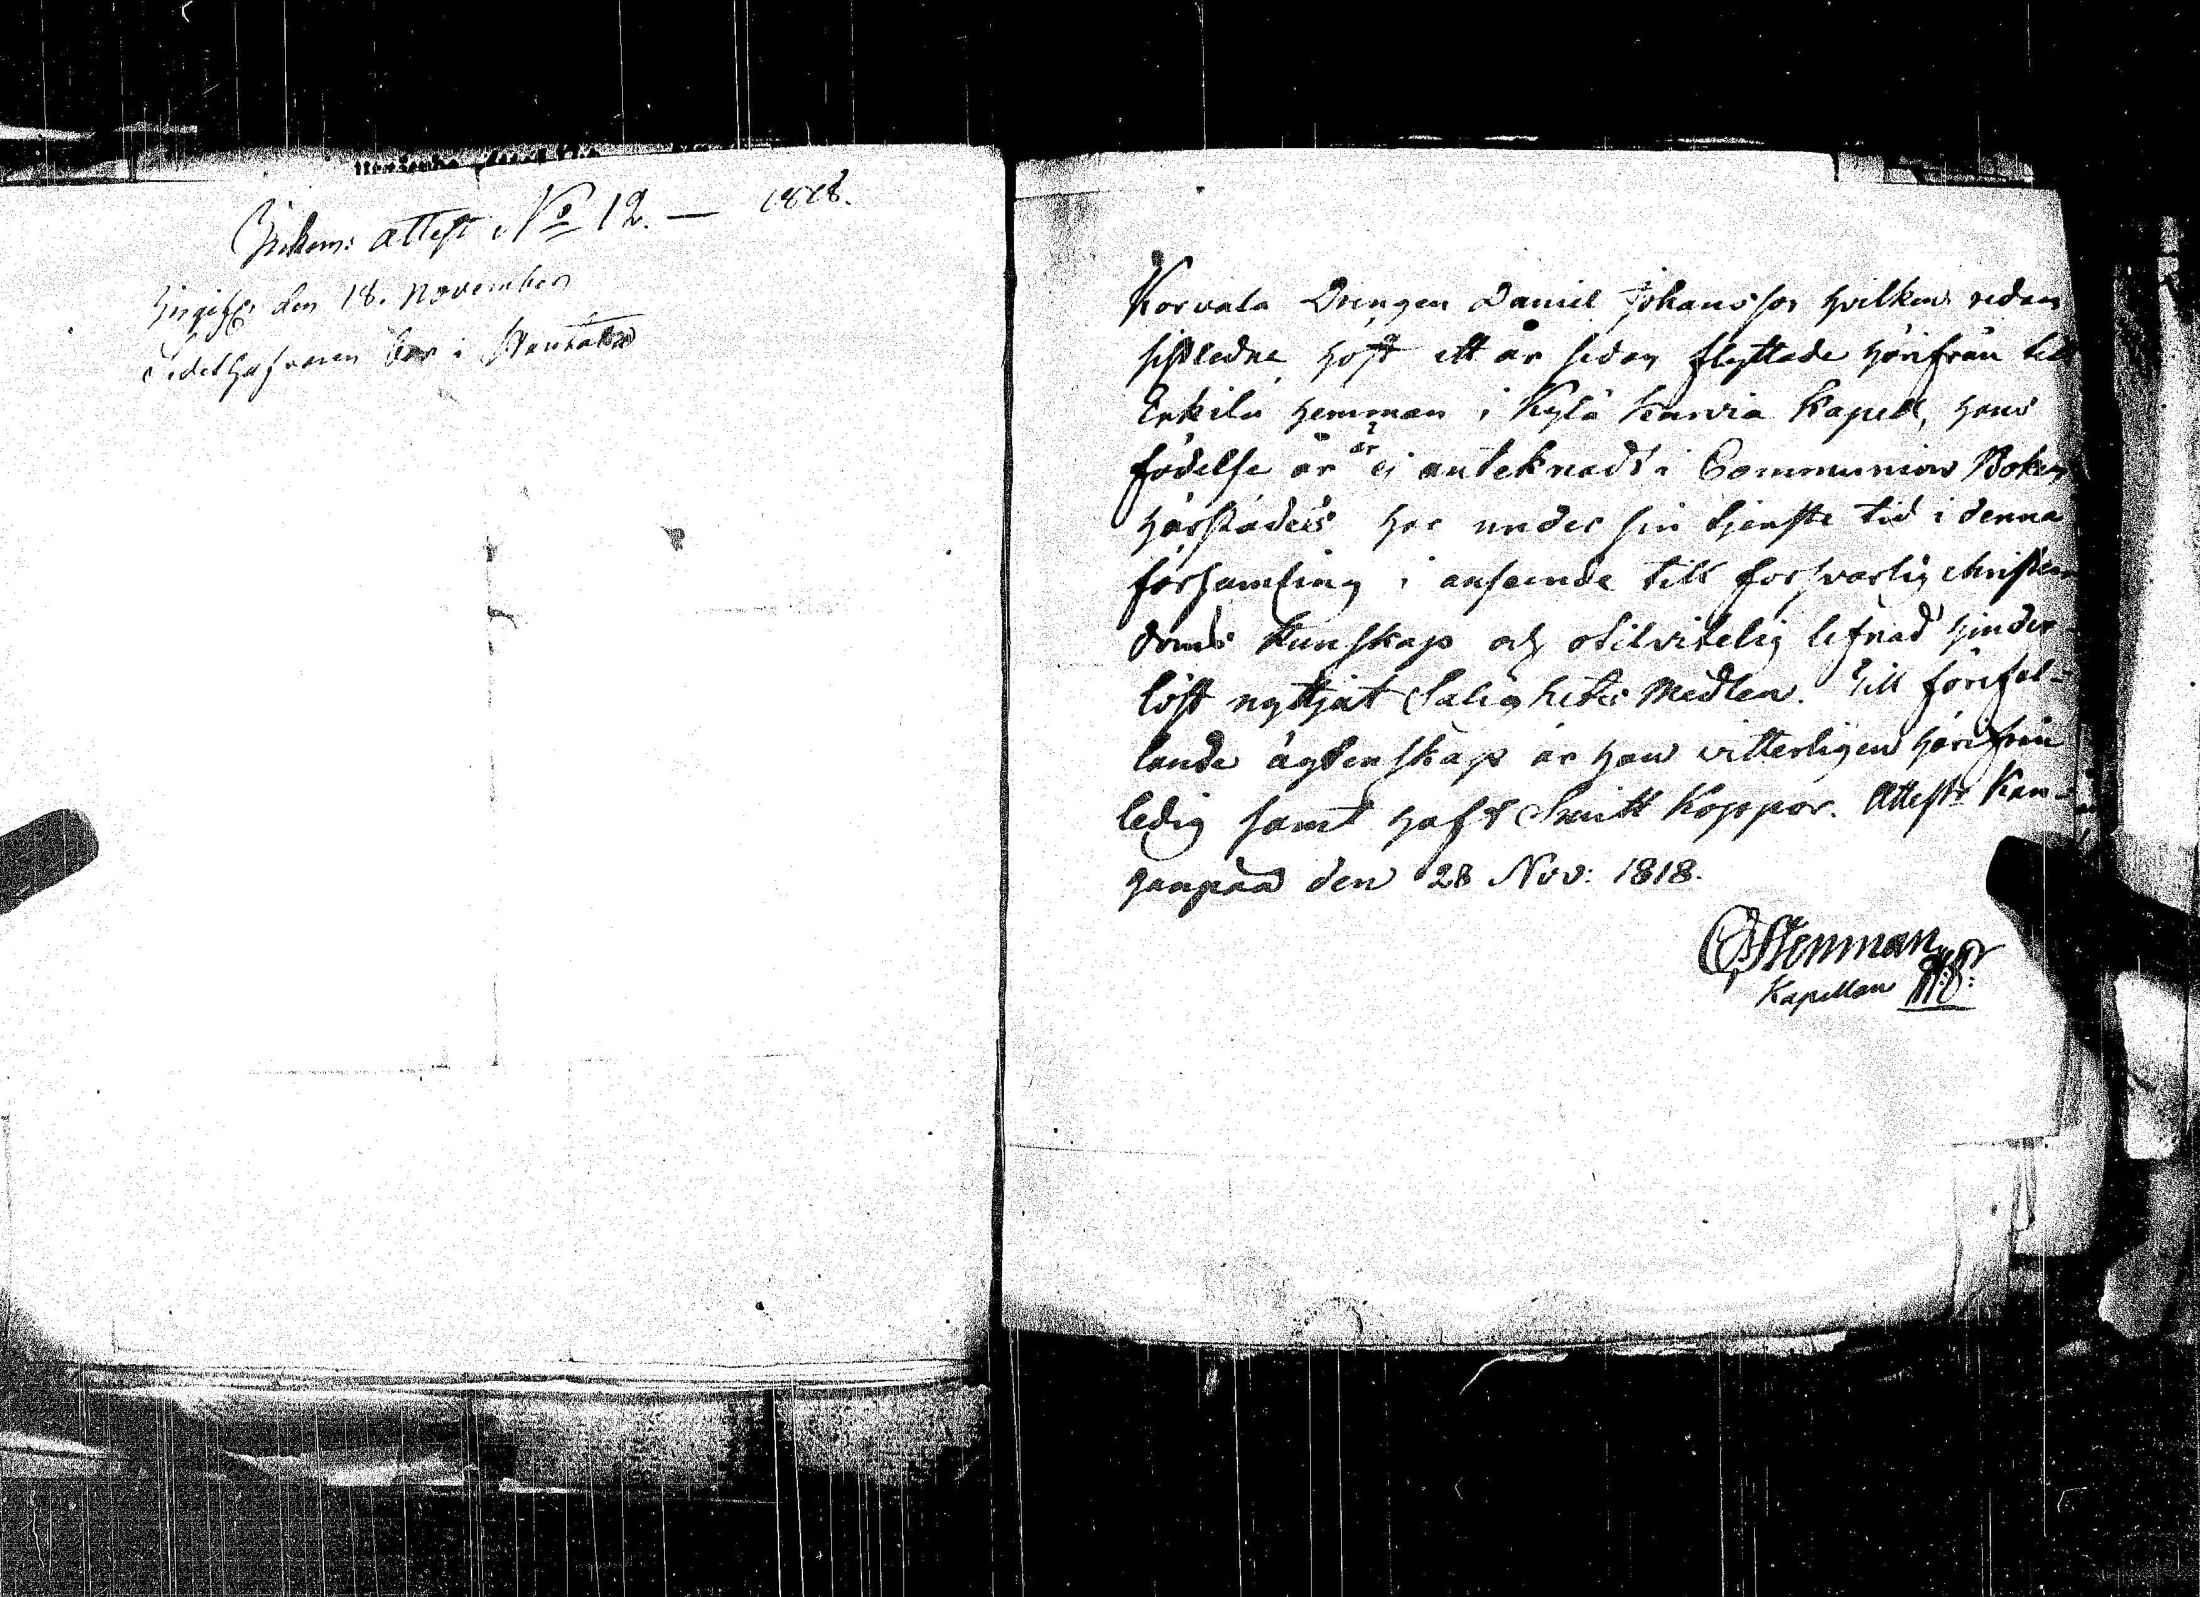 Inkom: attest No 12. — 1818.
den 18. November
i
Korvala Drengen Daniel Johansson hvilken redan
sistledne höst ett år sedan flyttade härifrån till
Erkilä hemman i Kylä Karvia Kapell, hans
födelse år är ej anteknadt i Communion Boken
härstädes har under sin tjenste tid i denna
församling i anseende till försvarlig christen-
doms kunskap och otilvitelig lefnad hinder-
löst nyttjat Salighets Medlen. Till förefal-
lande ägtenskap är han vitterligen härifrån
ledig samt haft Smitt Koppor. Attestr Kan-
hanpää den 28 Nov: 1818.
Stenman
Kapellan